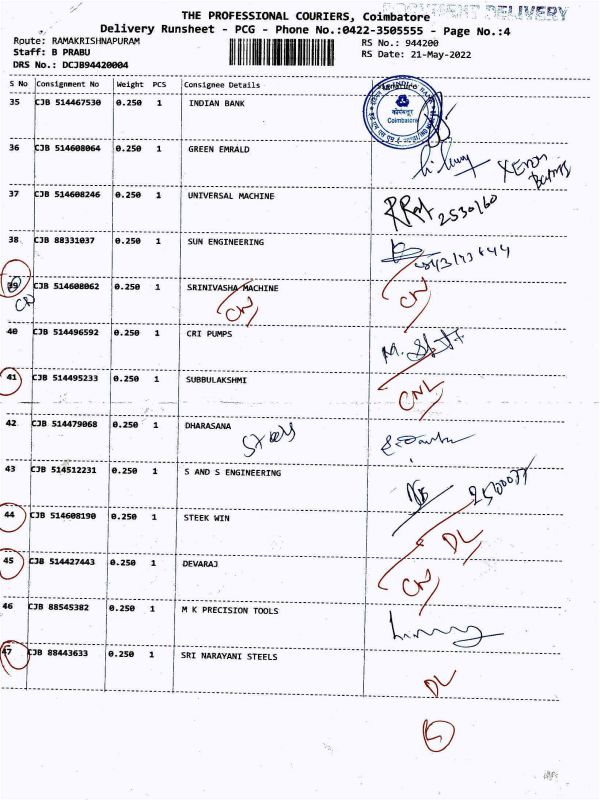 THE PROFESSIONAL COURIERS, Coimbatore
DOCUMENT DELIVERY
Delivery Runsheet - PCG - Phone No.:0422-3505555 - Page No.:4
Route: RAMAKRISHNAPURAM
RS No.: 944200
Staff: B PRABU
RS Date: 21-May-2022
DRS No.: DCJB94420004
S No Consignment No Weight PCS Consignee Details
35 CJB 514467530 0.250 1 INDIAN BANK
कोयम्बतूर
Coimbatore
36 CJB 514608064 0.250 1 GREEN EMRALD
37 CJB 514608246 0.250 1 UNIVERSAL MACHINE
2530160
38 CJB 88331037 0.250 1 SUN ENGINEERING
39 CJB 514608062 0.250 1 SRINIVASHA MACHINE
CN CN
40 CJB 514496592 0.250 1 CRI PUMPS
41 CJB 514495233 0.250 1 SUBBULAKSHMI
CNL
42 CJB 514479068 0.250 1 DHARASANA
43 CJB 514512231 0.250 1 S AND S ENGINEERING
44 CJB 514608190 0.250 1 STEEK WIN
DL
45 CJB 514427443 0.250 1 DEVARAJ
CN
46 CJB 88545382 0.250 1 M K PRECISION TOOLS
47 CJB 88443633 0.250 1 SRI NARAYANI STEELS
DL
5